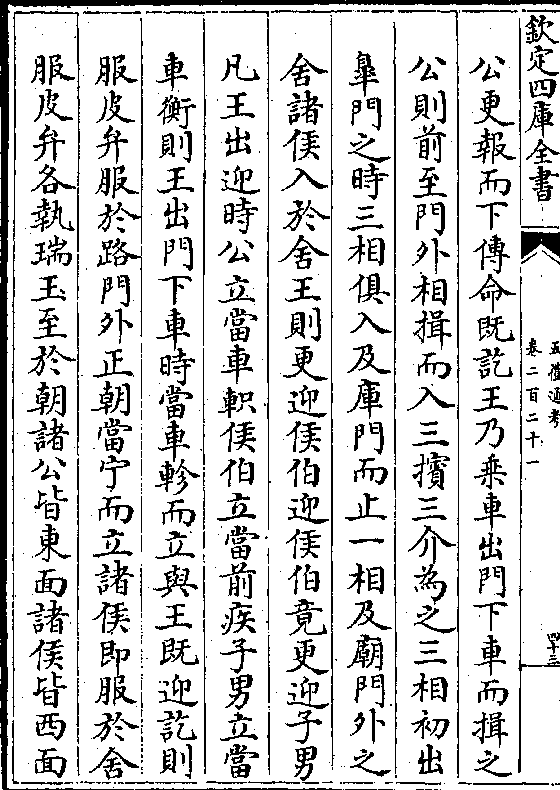 欽定四庫全書
五禮通考
卷二百二十一
四十三
公更報而下傳命既訖王乃乗車出門下車而揖之
公則前至門外相揖而入三擯三介為之三相初出
臯門之時三相俱入及庫門而止一相及廟門外之
舍諸侯入於舍王則更迎侯伯迎侯伯竟更迎子男
凡王出迎時公立當車軹侯伯立當前疾子男立當
車衡則王出門下車時當車軫而立與王既迎訖則
服皮弁服於路門外正朝當宁而立諸侯即服於舍
服皮弁各執瑞玉至於朝諸公皆東面諸侯皆西面